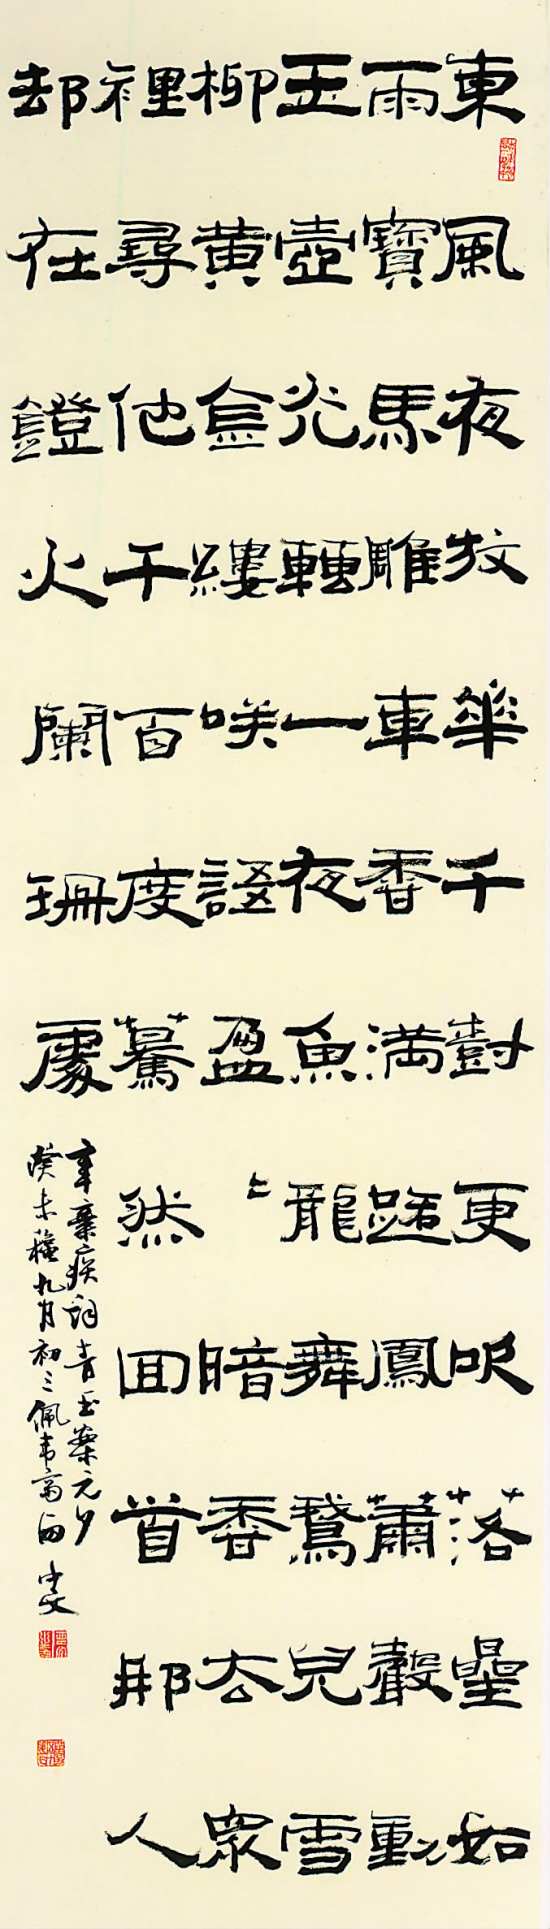 東風夜放華千尌更吹落曐如
雨寶馬雕車香滿路鳳蕭聲動
玉壺光轉一夜魚龍舞鵝兒雪
柳黄金縷咲語盈〻暗香去眾
裡尋他千百度驀然回首那人
却在鐙火闌珊處
辛棄疾詞青玉案元夕
癸未穐九月初三佩韋齋